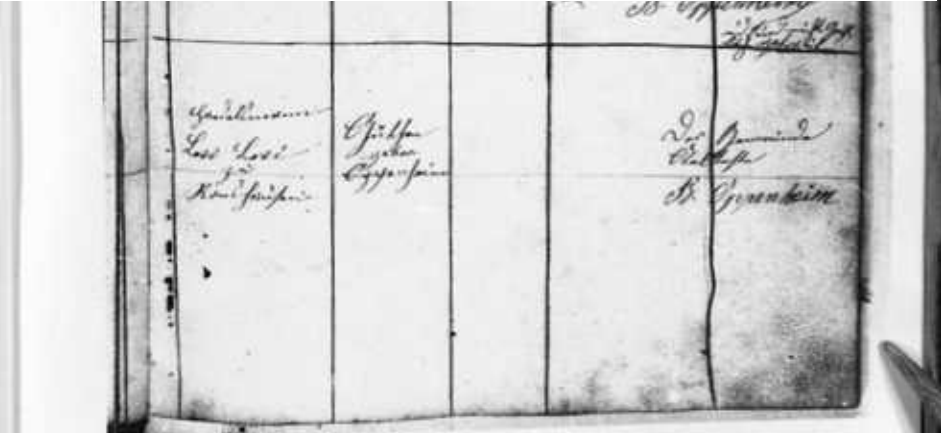 B. Oppenheim
Handelsmann
Levi Levi
zu
Ronshausen
Güthen
geborn
Oppenheim
Der Gemeinde
Aelteste
B. Oppenheim